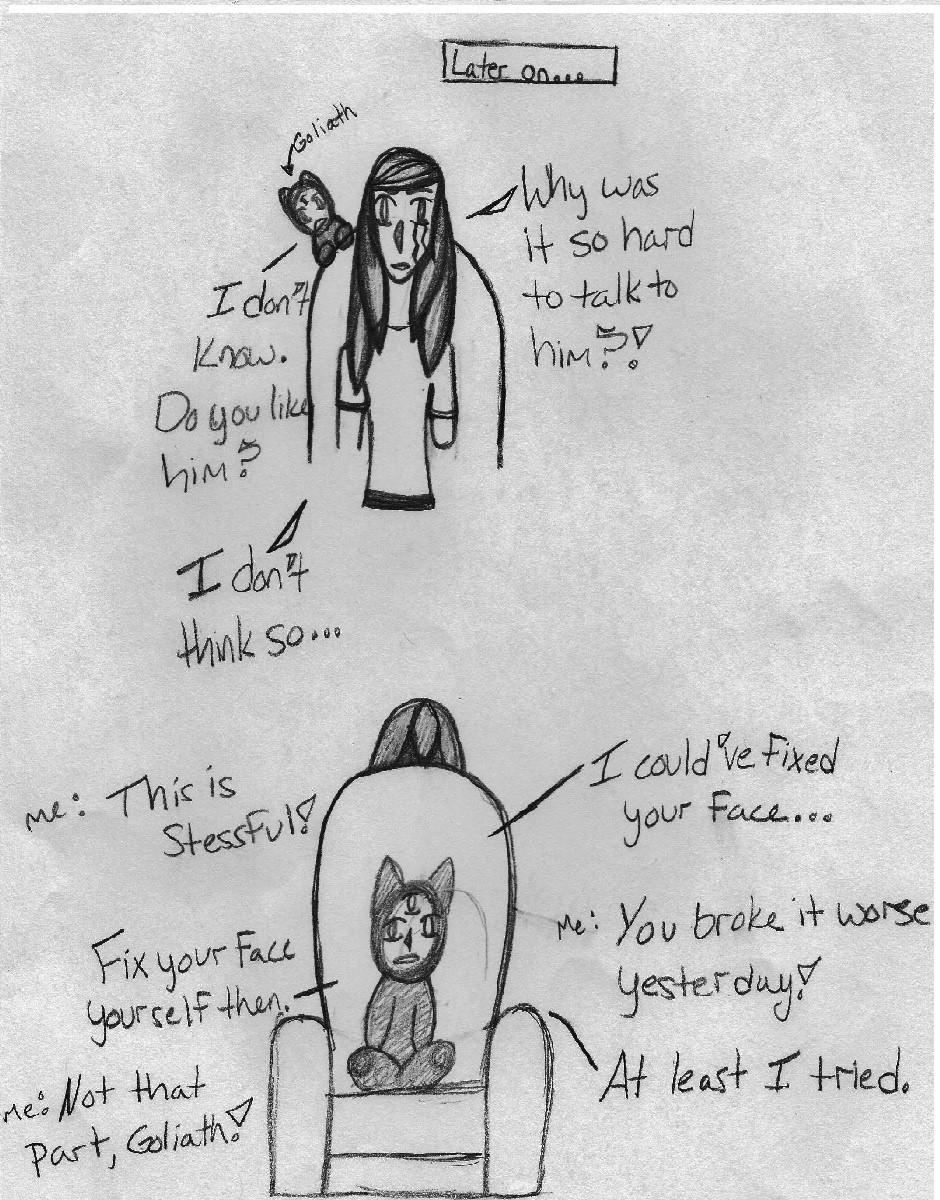 Later on...
Goliath
Why was
it so hard
to talk to
him?!
I don't
know.
Do you like
him?
I don't
think so...
me: This is
Stessful!
I could've fixed
your face...
Fix your face
yourself then.
me: You broke it worse
yesterday!
me: Not that
part, Goliath!
At least I tried.